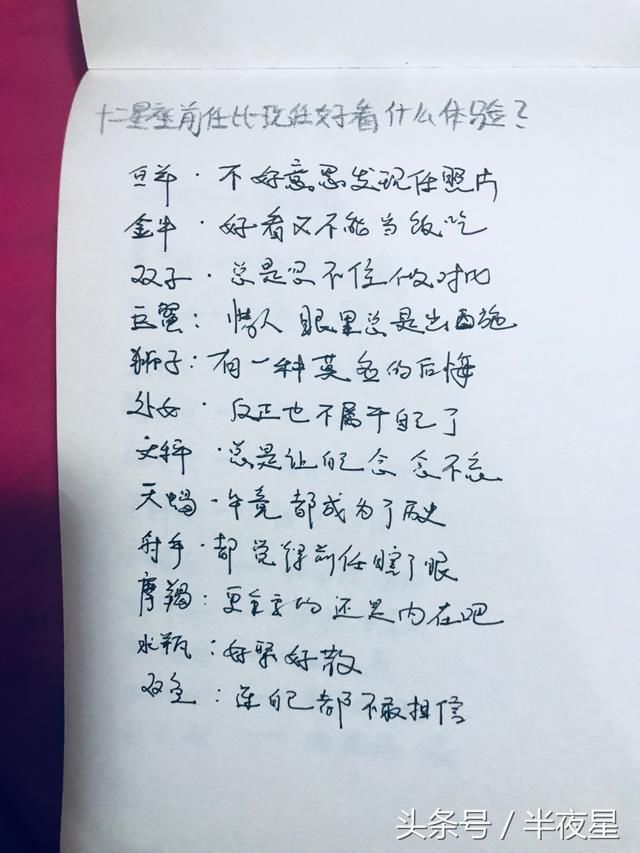 十二星座前任比现任好看什么体验?
白羊·不好意思发现任照片
金牛·好看又不能当饭吃
双子·总是忍不住做对比
巨蟹：情人眼里总是出西施
狮子：有一种莫名的后悔
处女·反正也不属于自己了
天秤·总是让自己念念不忘
天蝎·毕竟都成为了历史
射手·都觉得前任瞎了眼
摩羯：更重要的还是内在吧
水瓶：好聚好散
双鱼：连自己都不敢相信
头条号／半夜星